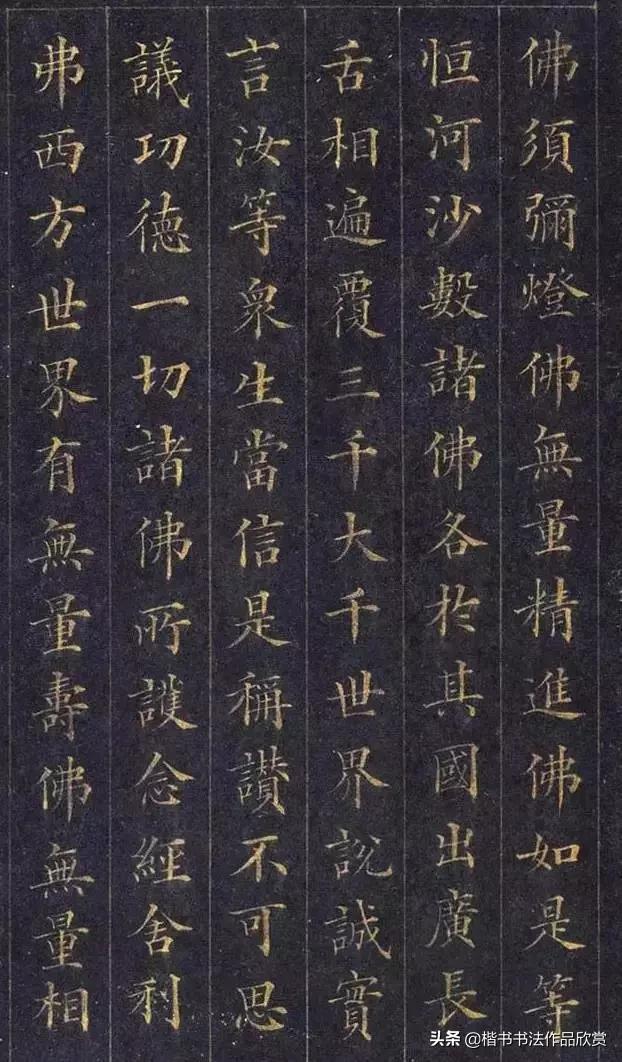 佛須彌燈佛無量精進佛如是等
恒河沙數諸佛各於其國出廣長
舌相遍覆三千大千世界說誠實
言汝等眾生當信是稱讚不可思
議功德一切諸佛所護念經舍利
弗西方世界有無量壽佛無量相
头条 @楷书书法作品欣赏